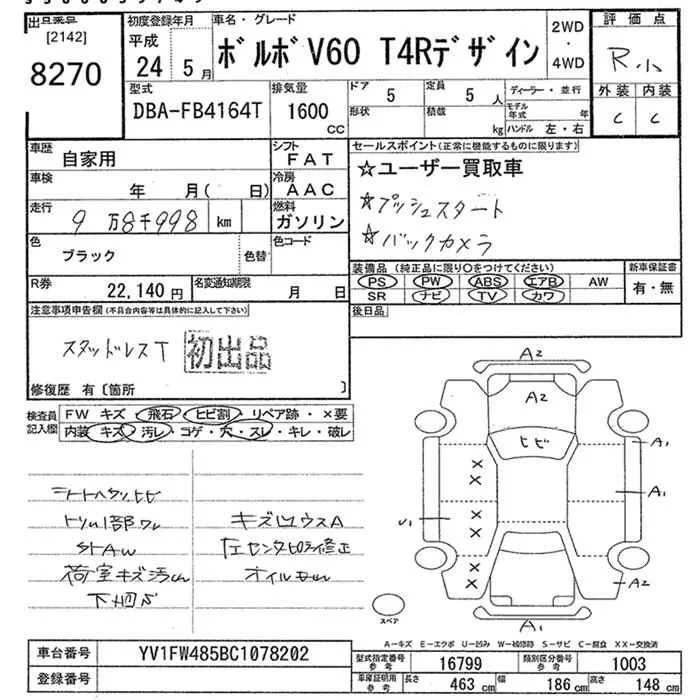 出品番号 初度登録年月 車名・グレード 2WD・4WD 評価点
[2142]
8270
平成 24 5月
ボルボ V60 T4Rデザイン
R.小
型式 排気量 ドア 5 定員 5人 ディーラー・並行 外装 内装
DBA-FB4164T 1600cc 形状 積載 kg モデル年式 年 C C
ハンドル 左・右
車歴 自家用 シフト FAT
セールスポイント(正常に機能するものに限ります)
☆ユーザー買取車
☆プッシュスタート
☆バックカメラ
車検 年 月( 日) 冷房 AAC
走行 9万8千998 km 燃料 ガソリン
色 ブラック 色替 色コード
装備品 (純正品に限り○をつけてください) 新車保証書
PS PW ABS エアB AW 有・無
SR ナビ TV カワ
R券 22,140円 名変通知期限 月 日
後日品
注意事項申告欄(不具合内容等は具体的に記入して下さい)
スタッドレスT 初出品
修復歴 有〔箇所 〕
検査員記入欄 FW キズ・飛石・ヒビ割・リペア跡・×要
内装 キズ・汚レ・コゲ・穴・スレ・キレ・破レ
シートヘタリヒビ
トリム1部ワレ
StAW
荷室キズ汚れ
キズ凹ウスA
左センタピラー修正
オイルもれ
A2
A2
ヒビ
A1
A1
U1
A2
A1
× × × × × ×
スペア
A-キズ E-エクボ U-凹み W-補修跡 S-サビ C-腐食 XX-交換済
車台番号 YV1FW485BC1078202
登録番号
型式指定番号 16799 類別区分番号 1003
車庫証明用参考 長さ 463cm 幅 186cm 高さ 148cm